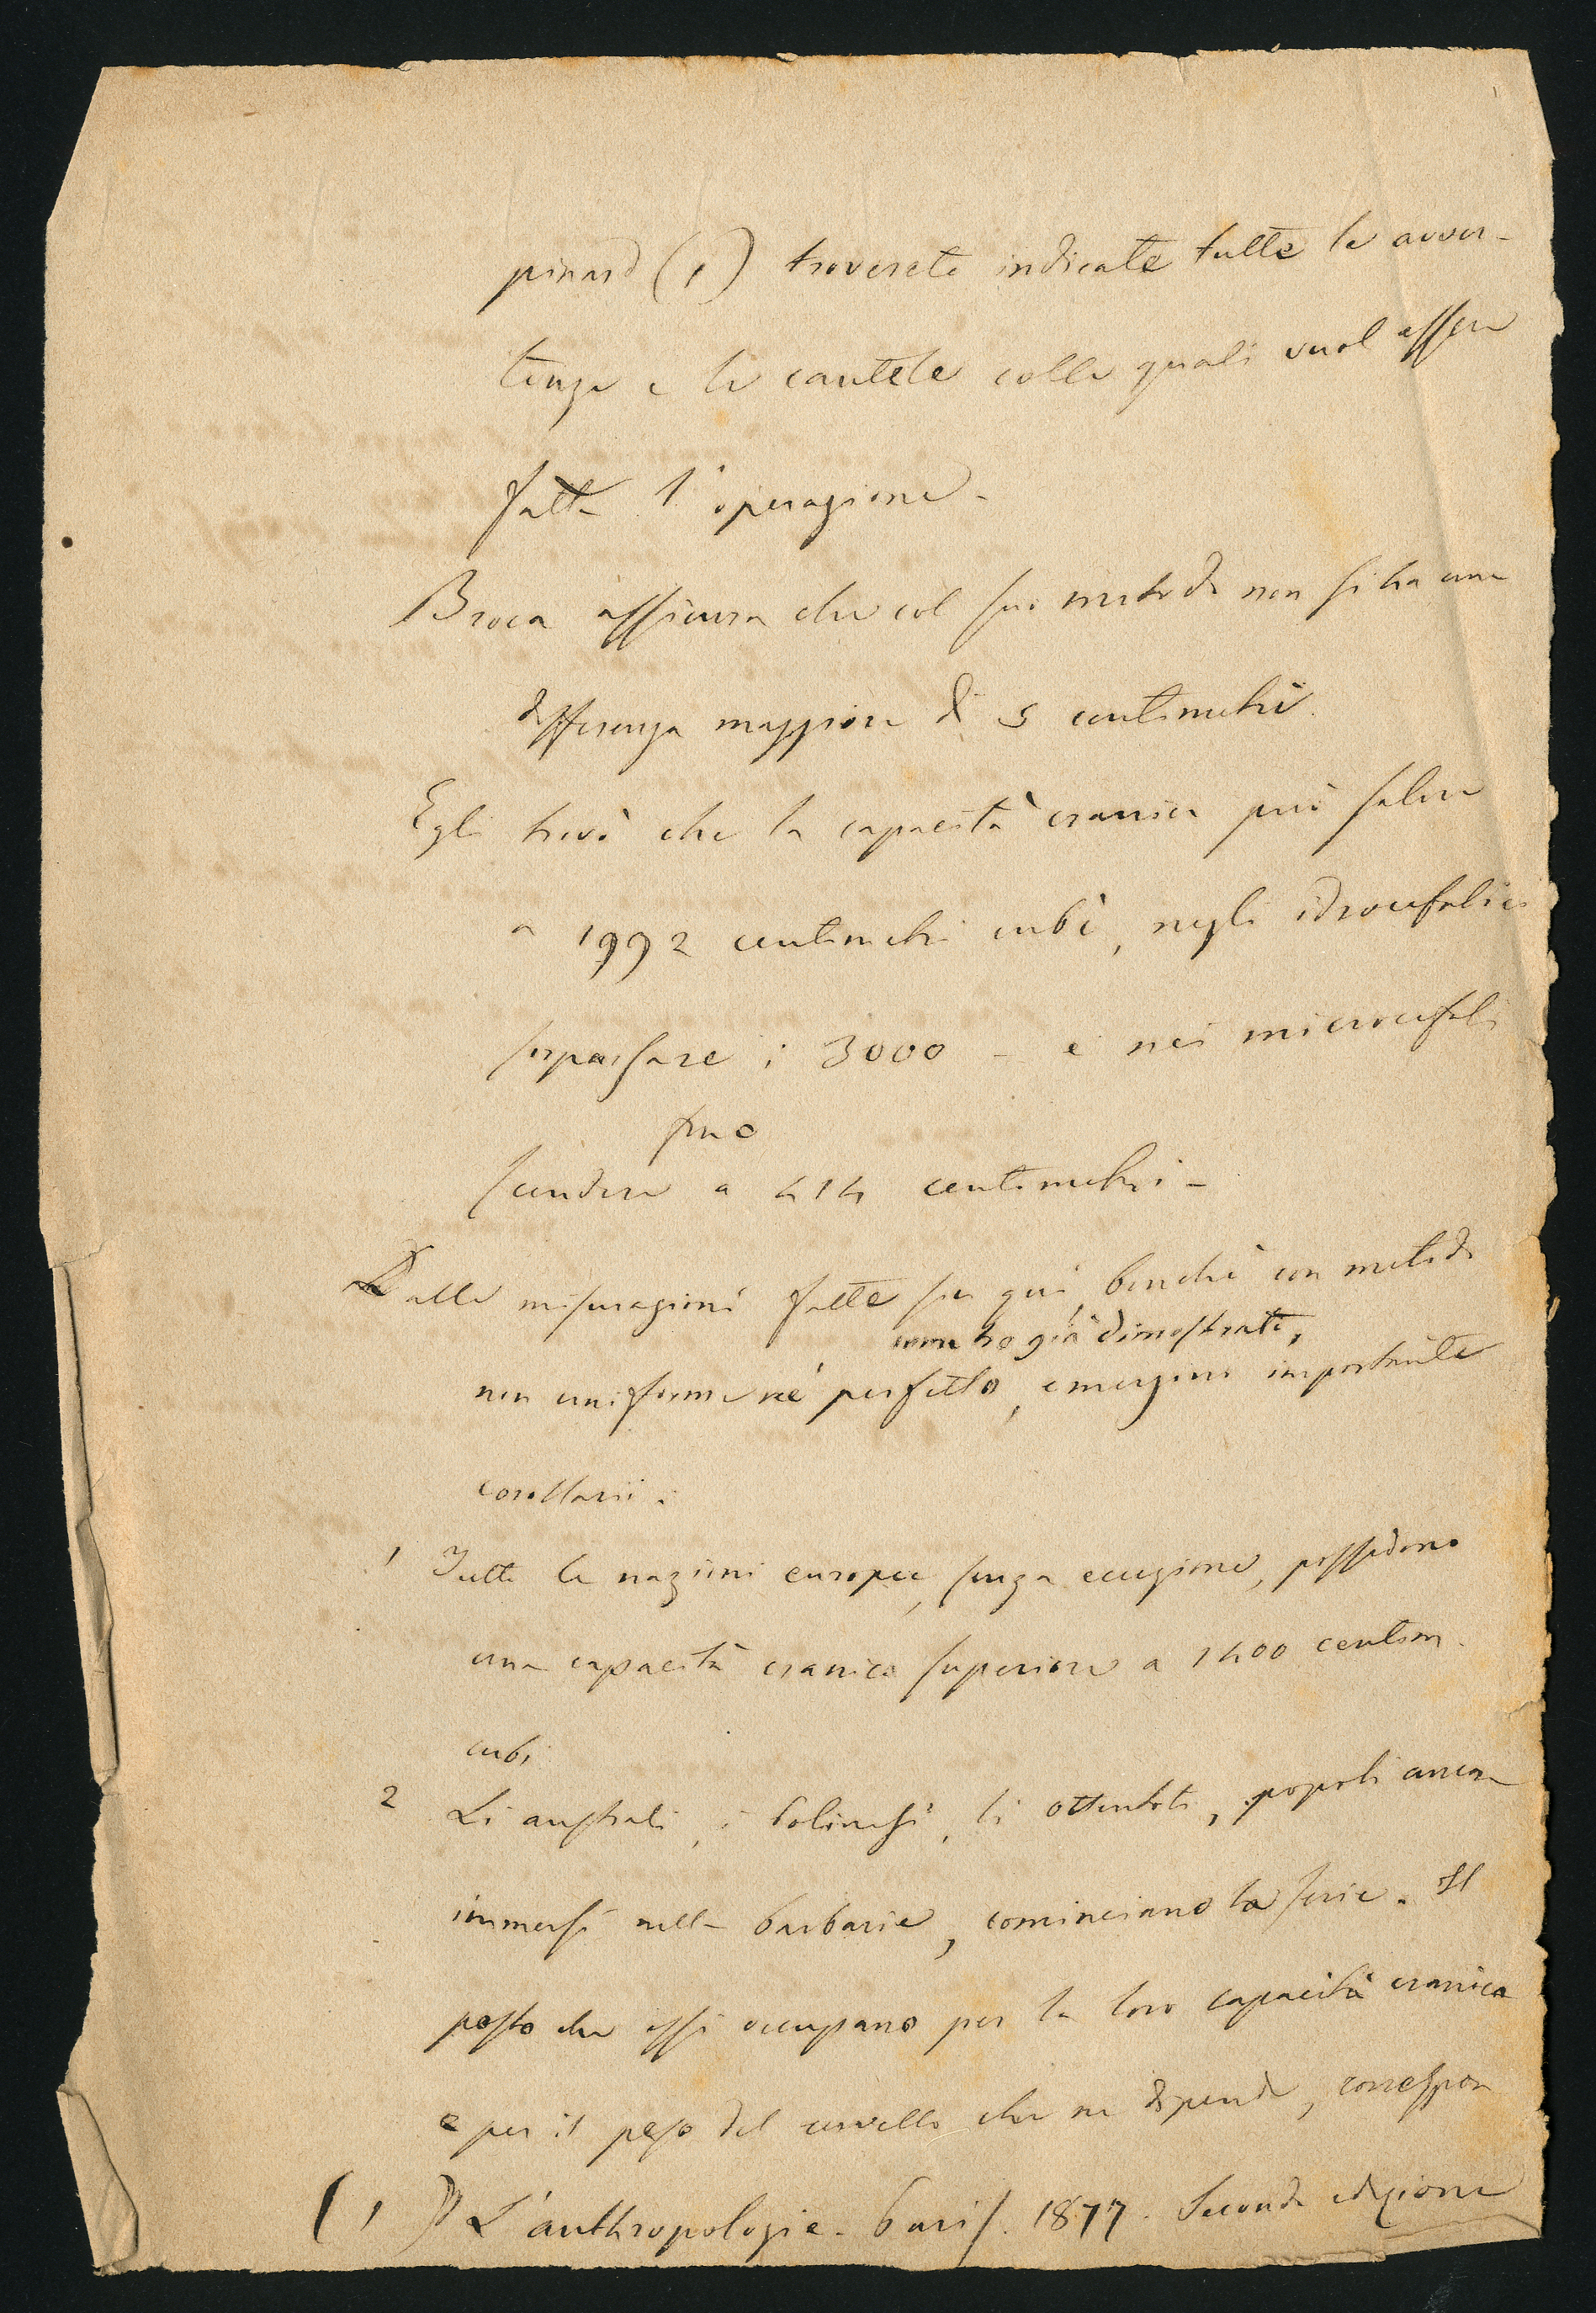 pinard (1) troverete indicate tutte le avver-
tenze e le cautele colle quali vuol essere
fatta l'operazione -
Broca assicura che col suo metodo non si ha una
differenza maggiore di 5 centimetri.
Egli trovò che la capacità cranica può salire
a 1992 centimetri cubi, negli idrocefalici
sorpassare i 3000 - e nei microcefali
fino
scendere a 414 centimetri -
Dalle misurazioni fatte fin qui, benchè con metodo
come ho già dimostrato,
non uniforme nè perfetto, emergono importanti
corollarii.
1 Tutte le nazioni europee, senza eccezione, possedono
una capacità cranica superiore a 1400 centim.
cubi
2 Li australi, i Polinesi, li ottentoti, popoli ancora
immersi nella barbarie, cominciano la serie. Il
posto che essi occupano per la loro capacità cranica
e per il peso del cervello che ne dipende, correspon
(1) L'anthropologie. Paris. 1877. Seconda edizione